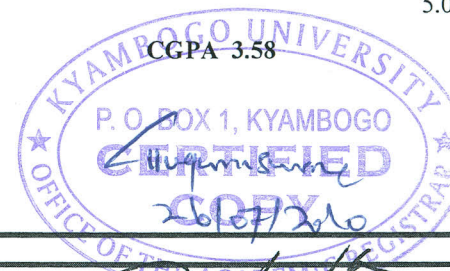 5.0
CGPA 3.58
KYAMBOGO UNIVERSITY
P. O. BOX 1, KYAMBOGO
CERTIFIED
COPY
26/07/2010
OFFICE OF THE REGISTRAR